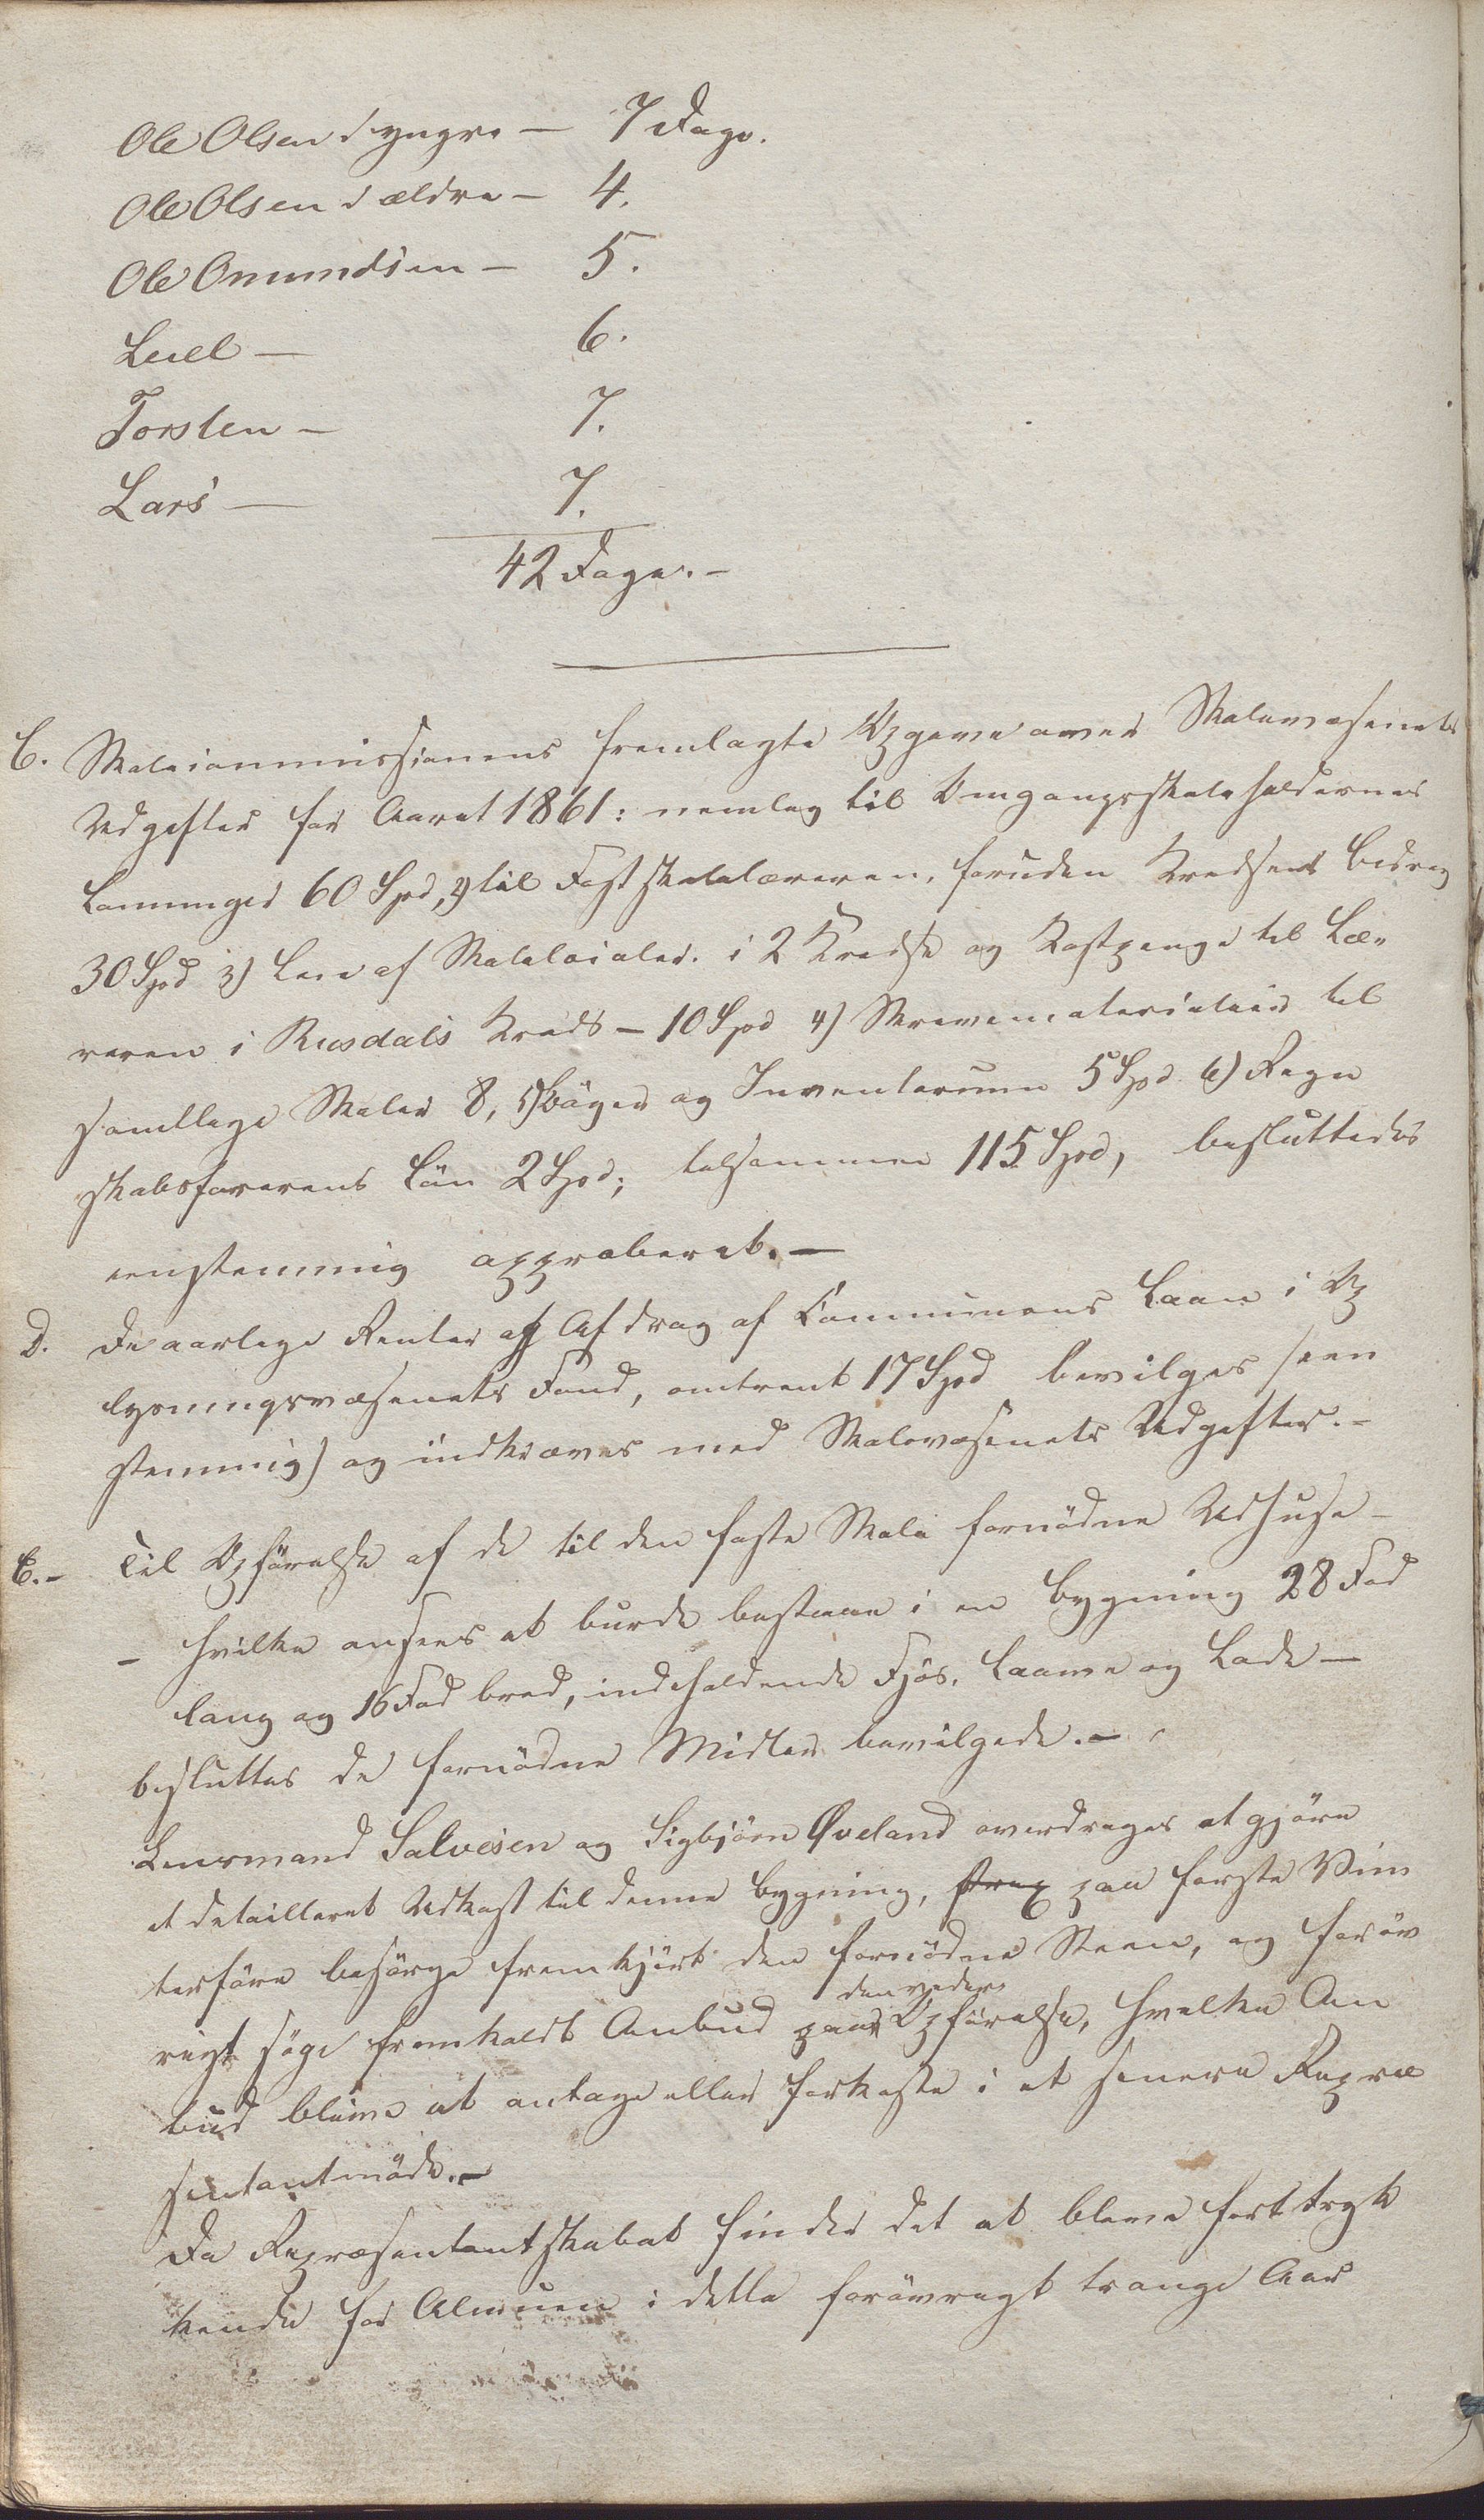 Ole Olsen d yngre — 7 Dage.
Ole Olsen d ældre — 4.
Ole Omundsen — 5.
Luel — 6.
Torsten — 7.
Lars — 7.
42 Dage. —
C. Skolecommissionens fremlagte Opgave over Skolevæsenets
Udgifter for Aaret 1861: nemlig til Omgangsskoleholdernes
Lønninger 60 Spd, 2) til Fastskolelæreren, foruden Kredsens Bidrag
30 Spd 3) Leie af Skolelocaler i 2 Kredse og Kostpenge til Læ-
reren i Rusdals Kreds — 10 Spd 4) Skrivematerialier til
samtlige Skoler 8, 5) Bøger og Inventarium 5 Spd 6) Regn
skabsførerens Løn 2 Spd; tilsammen 115 Spd, besluttedes
eenstemmig approberet. —
D. De aarlige Renter og Afdrag af Communens Laan i Op
lysningsvæsenets Fond, omtrent 17 Spd bevilges (een
stemmig) og indkræves med Skolevæsenets Udgifter. —
E. — Til Opførelse af de til den faste Skole fornødne Udhuse —
— hvilke ansees at burde bestaae i en Bygning 28 Fod
lang og 16 Fod bred, indeholdende Fjøs, Laave og Lade —
besluttes de fornødne Midler bevilgede. —
Lensmand Salvesen og Sigbjørn Øveland overdrages at gjøre
et detailleret Udkast til denne Bygning, strax paa første Vin
terføre besørge fremkjørt den fornødne Steen, og forøv
rigt søge fremkaldt Anbud paa
dennes
Opførelse, hvilke An
bud blive at antage eller forkaste i et senere Repræ
sentantmøde. —
Da Repræsentantskabet finder det at blive for tryk
kende for Almuen i dette forøvrigt trange Aar